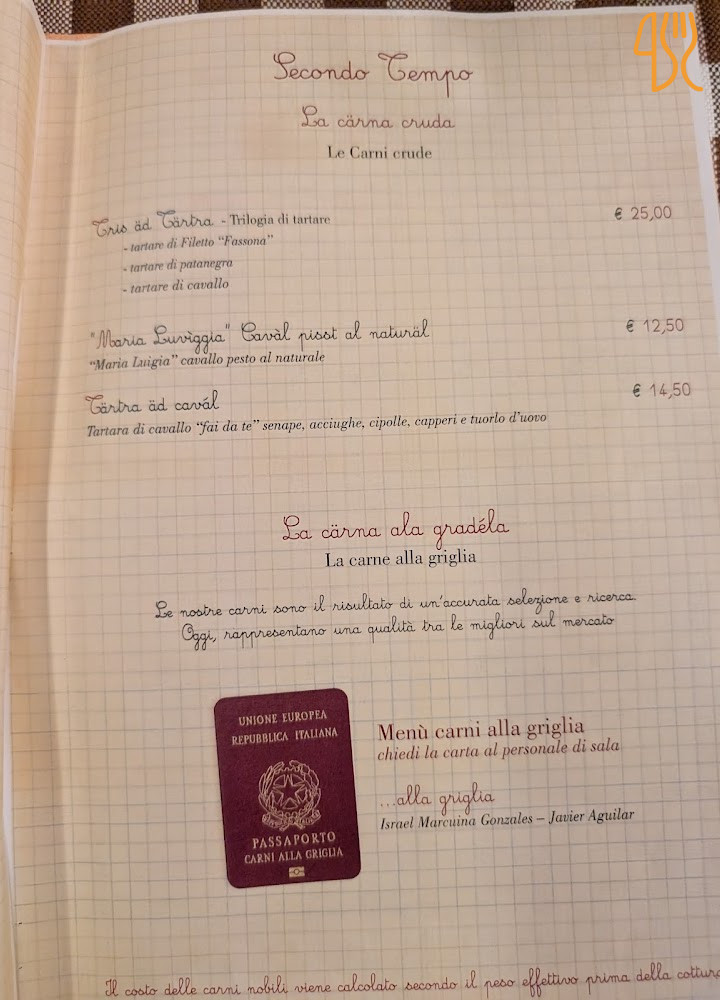 Secondo Tempo
La cärna cruda
Le Carni crude
Tris äd Tärtra - Trilogia di tartare € 25,00
- tartare di Filetto “Fassona”
- tartare di patanegra
- tartare di cavallo
"Maria Luvìggia" Cavàl pisst al naturäl € 12,50
“Maria Luigia” cavallo pesto al naturale
Tärtra äd cavál € 14,50
Tartara di cavallo “fai da te” senape, acciughe, cipolle, capperi e tuorlo d’uovo
La cärna ala gradéla
La carne alla griglia
Le nostre carni sono il risultato di un'accurata selezione e ricerca.
Oggi, rappresentano una qualità tra le migliori sul mercato
UNIONE EUROPEA
REPUBBLICA ITALIANA
PASSAPORTO
CARNI ALLA GRIGLIA
Menù carni alla griglia
chiedi la carta al personale di sala
...alla griglia
Israel Marcuina Gonzales – Javier Aguilar
Il costo delle carni nobili viene calcolato secondo il peso effettivo prima della cottura